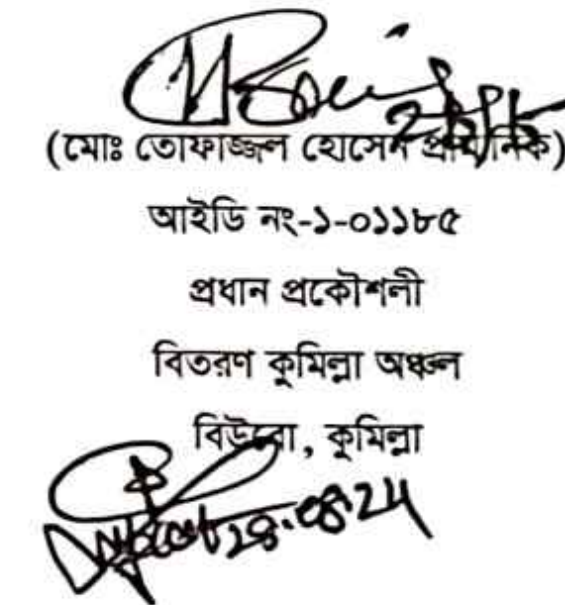 (মোঃ তোফাজ্জল হোসেন প্রামানিক)
আইডি নং-১-০১১৮৫
প্রধান প্রকৌশলী
বিতরণ কুমিল্লা অঞ্চল
বিউবো, কুমিল্লা
28.08.24